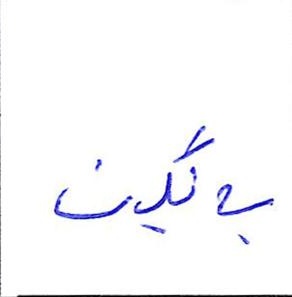 بے گین